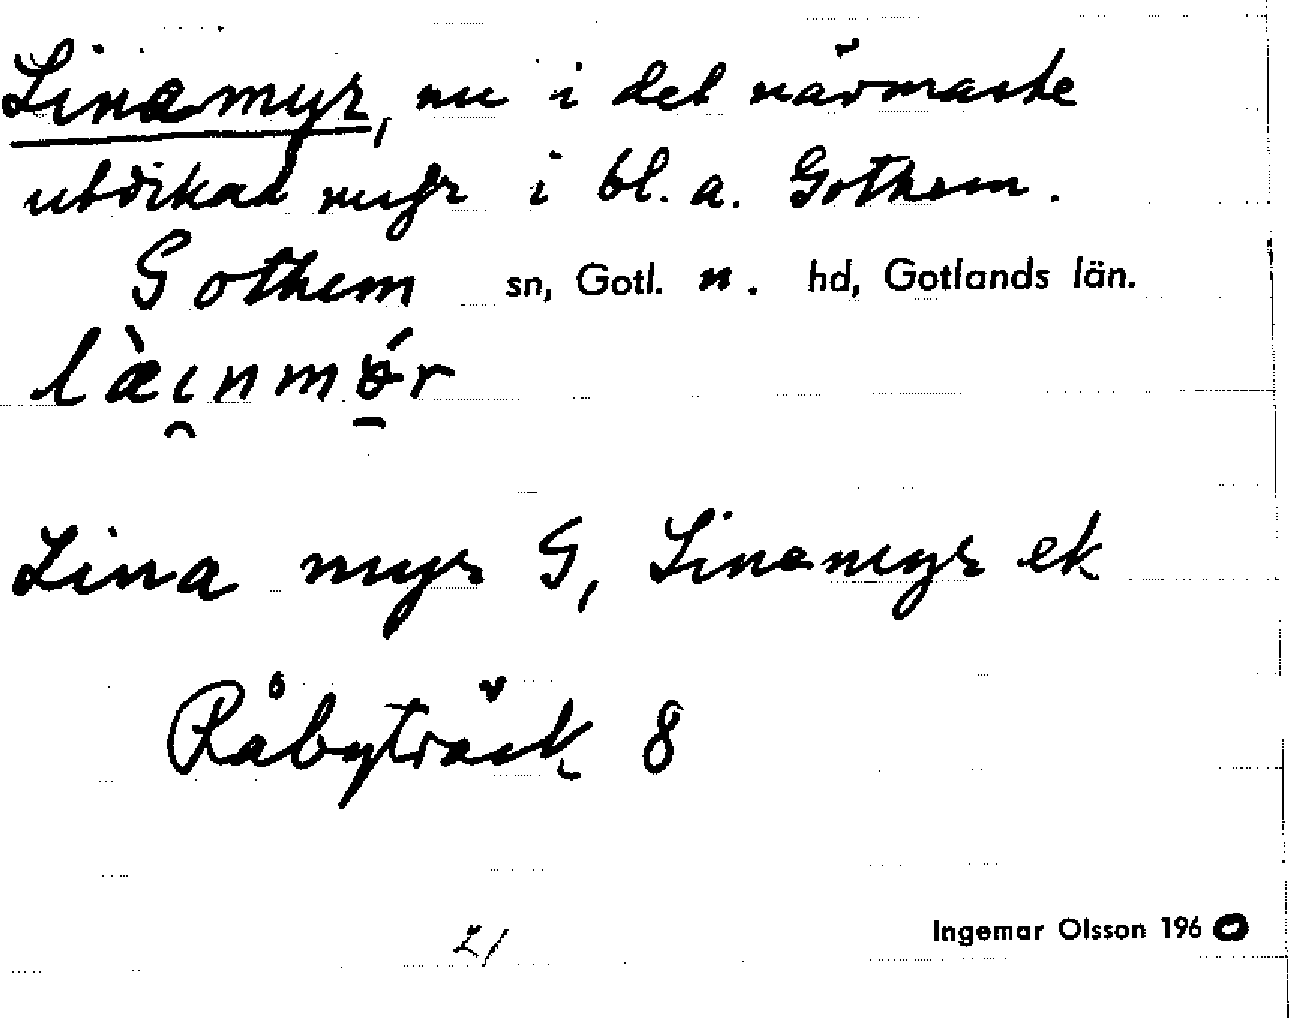 Linamyr, nu i det närmaste
utdikad myr i bl.a. Gothem.
Gothem sn, Gotl. n. hd, Gotlands län.
Lina myr G, Linamyr ek
Råbyträsk 8
21
Ingemar Olsson 1960